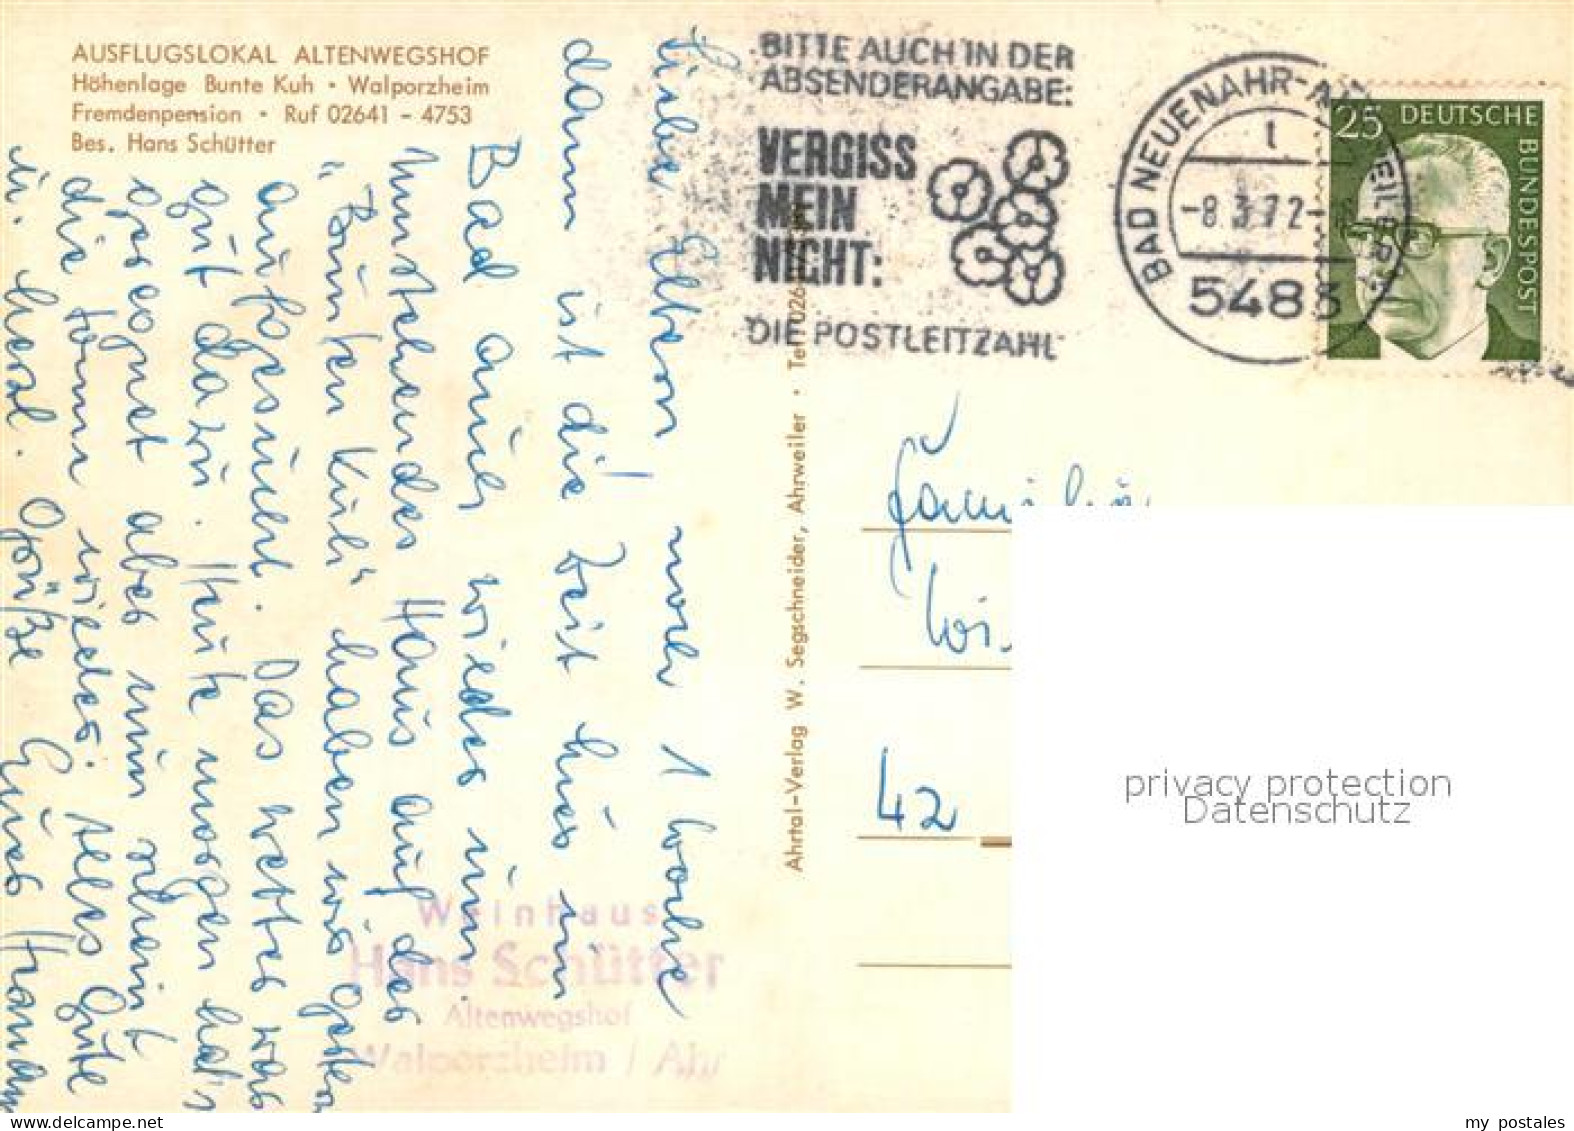 AUSFLUGSLOKAL ALTENWEGSHOF
Höhenlage Bunte Kuh • Walporzheim
Fremdenpension • Ruf 02641 - 4753
Bes. Hans Schütter
BITTE AUCH IN DER
ABSENDERANGABE:
VERGISS
MEIN
NICHT:
DIE POSTLEITZAHL
BAD NEUENAHR-A
EILER
t
-8.3.72-
5483
25 DEUTSCHE
BUNDESPOST
Liebe Eltern noch 1 Woche
dann ist die Zeit hier in
Bad auch wieder um.
Umstehendes Haus auf der
"Bunten Kuh" haben wir gestern
aufgesucht. Das Wetter war
gut dazu. Heute morgen hat's
geregnet aber nun scheint
die Sonne wieder. Alles Gute
u. herzl. Grüße Euer Hermann
Ahrtal-Verlag W. Segschneider, Ahrweiler • Tel. 026
Familie
42
Weinhaus
Hans Schütter
Altenwegshof
Walporzheim / Ahr
privacy protection
Datenschutz
my postales